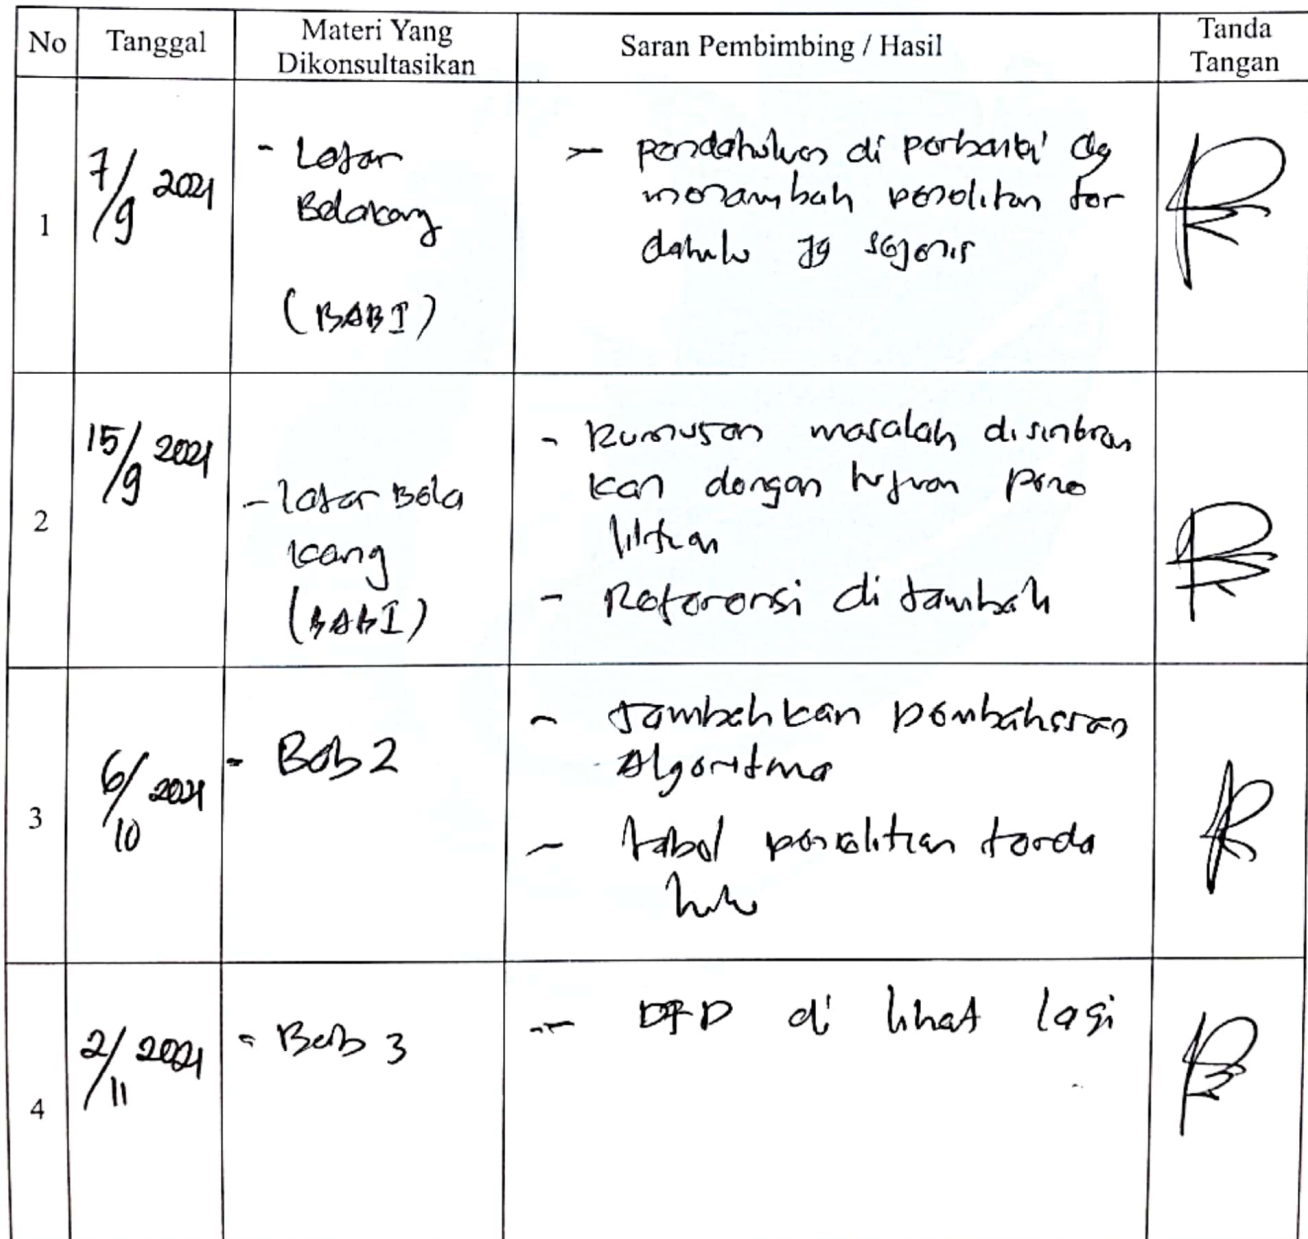 No Tanggal Materi Yang Dikonsultasikan Saran Pembimbing / Hasil Tanda Tangan
1
7/9 2021
- Latar
Belakang
(BAB I)
- pendahuluan di perbaiki dg
menambah penelitian ter
dahulu yg sejenis
2
15/9 2021
- latar Bela
kang
(BAB I)
- Rumusan masalah disinkron
kan dengan tujuan pene
litian
- Referensi di tambah
3
6/10 2021
- Bab 2
- tambahkan pembahasan
Algoritma
- tabel penelitian terda
hulu
4
2/11 2021
- Bab 3
- DFD di lihat lagi